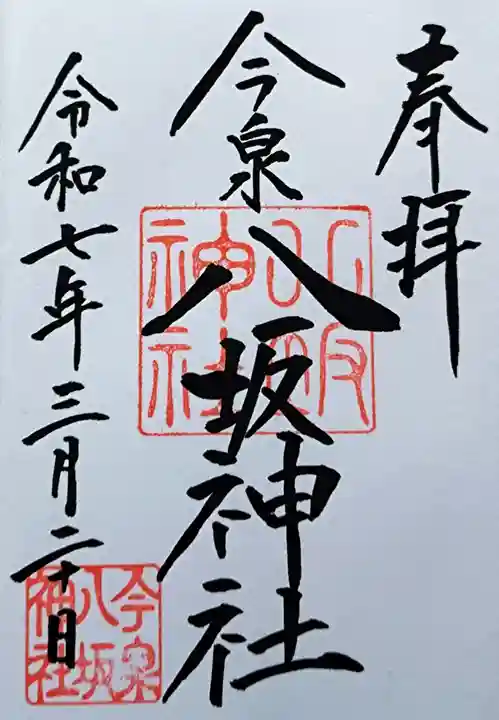 奉拝
今泉八坂神社
令和七年三月二十日
八坂
神社
今泉
八坂
神社